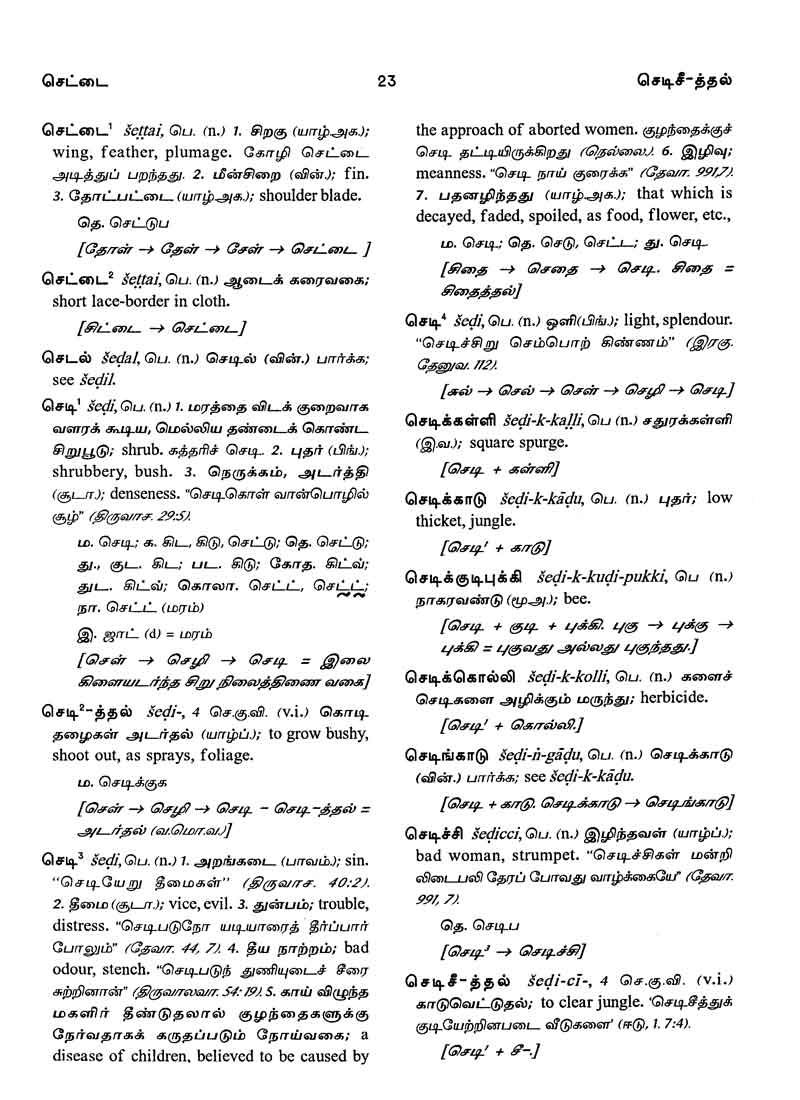 செட்டை
23
செடிசீ-த்தல்
செட்டை¹ šeṭṭai, பெ. (n.) 1. சிறகு (யாழ்.அக.);
wing, feather, plumage. கோழி செட்டை
அடித்துப் பறந்தது. 2. மீன்சிறை (வின்.); fin.
3. தோட்பட்டை (யாழ்.அக.); shoulder blade.
தெ. செட்டுப
[தோள் → தேள் → சேள் → செட்டை ]
செட்டை² šeṭṭai, பெ. (n.) ஆடைக் கரைவகை;
short lace-border in cloth.
[சிட்டை → செட்டை]
செடல் šeḍal, பெ. (n.) செடில் (வின்.) பார்க்க;
see šeḍil.
செடி¹ šeḍi, பெ. (n.) 1. மரத்தை விடக் குறைவாக
வளரக் கூடிய, மெல்லிய தண்டைக் கொண்ட
சிறுபூடு; shrub. கத்தரிச் செடி. 2. புதர் (பிங்.);
shrubbery, bush. 3. நெருக்கம், அடர்த்தி
(சூடா.); denseness. “செடிகொள் வான்பொழில்
சூழ்” (திருவாச. 29:5).
ம. செடி; க. கிட, கிடு, செட்டு; தெ. செட்டு;
து., குட. கிட; பட. கிடு; கோத. கிட்வ்;
துட. கிட்வ்; கொலா. செட்ட், செட்ட்;
நா. செட்ட் (மரம்)
இ. ஜாட் (d) = மரம்
[செள் → செழி → செடி = இலை
கிளையடர்ந்த சிறு நிலைத்திணை வகை]
செடி²-த்தல் šeḍi-, 4 செ.கு.வி. (v.i.) கொடி
தழைகள் அடர்தல் (யாழ்ப்.); to grow bushy,
shoot out, as sprays, foliage.
ம. செடிக்குக
[செள் → செழி → செடி - செடி-த்தல் =
அடர்தல் (வ.மொ.வ.)]
செடி³ šeḍi, பெ. (n.) 1. அறங்கடை (பாவம்); sin.
“செடியேறு தீமைகள்” (திருவாச. 40:2).
2. தீமை (சூடா.); vice, evil. 3. துன்பம்; trouble,
distress. “செடிபடுநோ யடியாரைத் தீர்ப்பார்
போலும்” (தேவா. 44, 7). 4. தீய நாற்றம்; bad
odour, stench. “செடிபடுந் துணியுடைச் சீரை
சுற்றினான்” (திருவாலவா. 54:19). 5. காய் விழுந்த
மகளிர் தீண்டுதலால் குழந்தைகளுக்கு
நேர்வதாகக் கருதப்படும் நோய்வகை; a
disease of children, believed to be caused by
the approach of aborted women. குழந்தைக்குச்
செடி தட்டியிருக்கிறது (நெல்லை.). 6. இழிவு;
meanness. “செடி நாய் குரைக்க” (தேவா. 991,7).
7. பதனழிந்தது (யாழ்.அக.); that which is
decayed, faded, spoiled, as food, flower, etc.,
ம. செடி; தெ. செடு, செட்ட; து. செடி
[சிதை → செதை → செடி. சிதை =
சிதைத்தல்]
செடி⁴ šeḍi, பெ. (n.) ஒளி(பிங்.); light, splendour.
“செடிச்சிறு செம்பொற் கிண்ணம்” (இரகு.
தேனுவ. 112).
[சுல் → செல் → செள் → செழி → செடி.]
செடிக்கள்ளி šeḍi-k-kaḷḷi, பெ (n.) சதுரக்கள்ளி
(இ.வ.); square spurge.
[செடி + கள்ளி]
செடிக்காடு šeḍi-k-kāḍu, பெ. (n.) புதர்; low
thicket, jungle.
[செடி¹ + காடு]
செடிக்குடிபுக்கி šeḍi-k-kuḍi-pukki, பெ (n.)
நாகரவண்டு (மூ.அ.); bee.
[செடி + குடி + புக்கி. புகு → புக்கு →
புக்கி = புகுவது அல்லது புகுந்தது.]
செடிக்கொல்லி šeḍi-k-kolli, பெ. (n.) களைச்
செடிகளை அழிக்கும் மருந்து; herbicide.
[செடி¹ + கொல்லி.]
செடிங்காடு šeḍi-ṅ-gāḍu, பெ. (n.) செடிக்காடு
(வின்.) பார்க்க; see šeḍi-k-kāḍu.
[செடி + காடு. செடிக்காடு → செடிங்காடு]
செடிச்சி šeḍicci, பெ. (n.) இழிந்தவள் (யாழ்ப்.);
bad woman, strumpet. “செடிச்சிகள் மன்றி
லிடைபலி தேரப் போவது வாழ்க்கையே” (தேவா.
991, 7).
தெ. செடிப
[செடி³ → செடிச்சி]
செடிசீ-த்தல் šeḍi-cī-, 4 செ.கு.வி. (v.i.)
காடுவெட்டுதல்; to clear jungle. ‘செடிசீத்துக்
குடியேற்றினபடை வீடுகளை’ (ஈடு, 1. 7:4).
[செடி¹ + சீ-.]